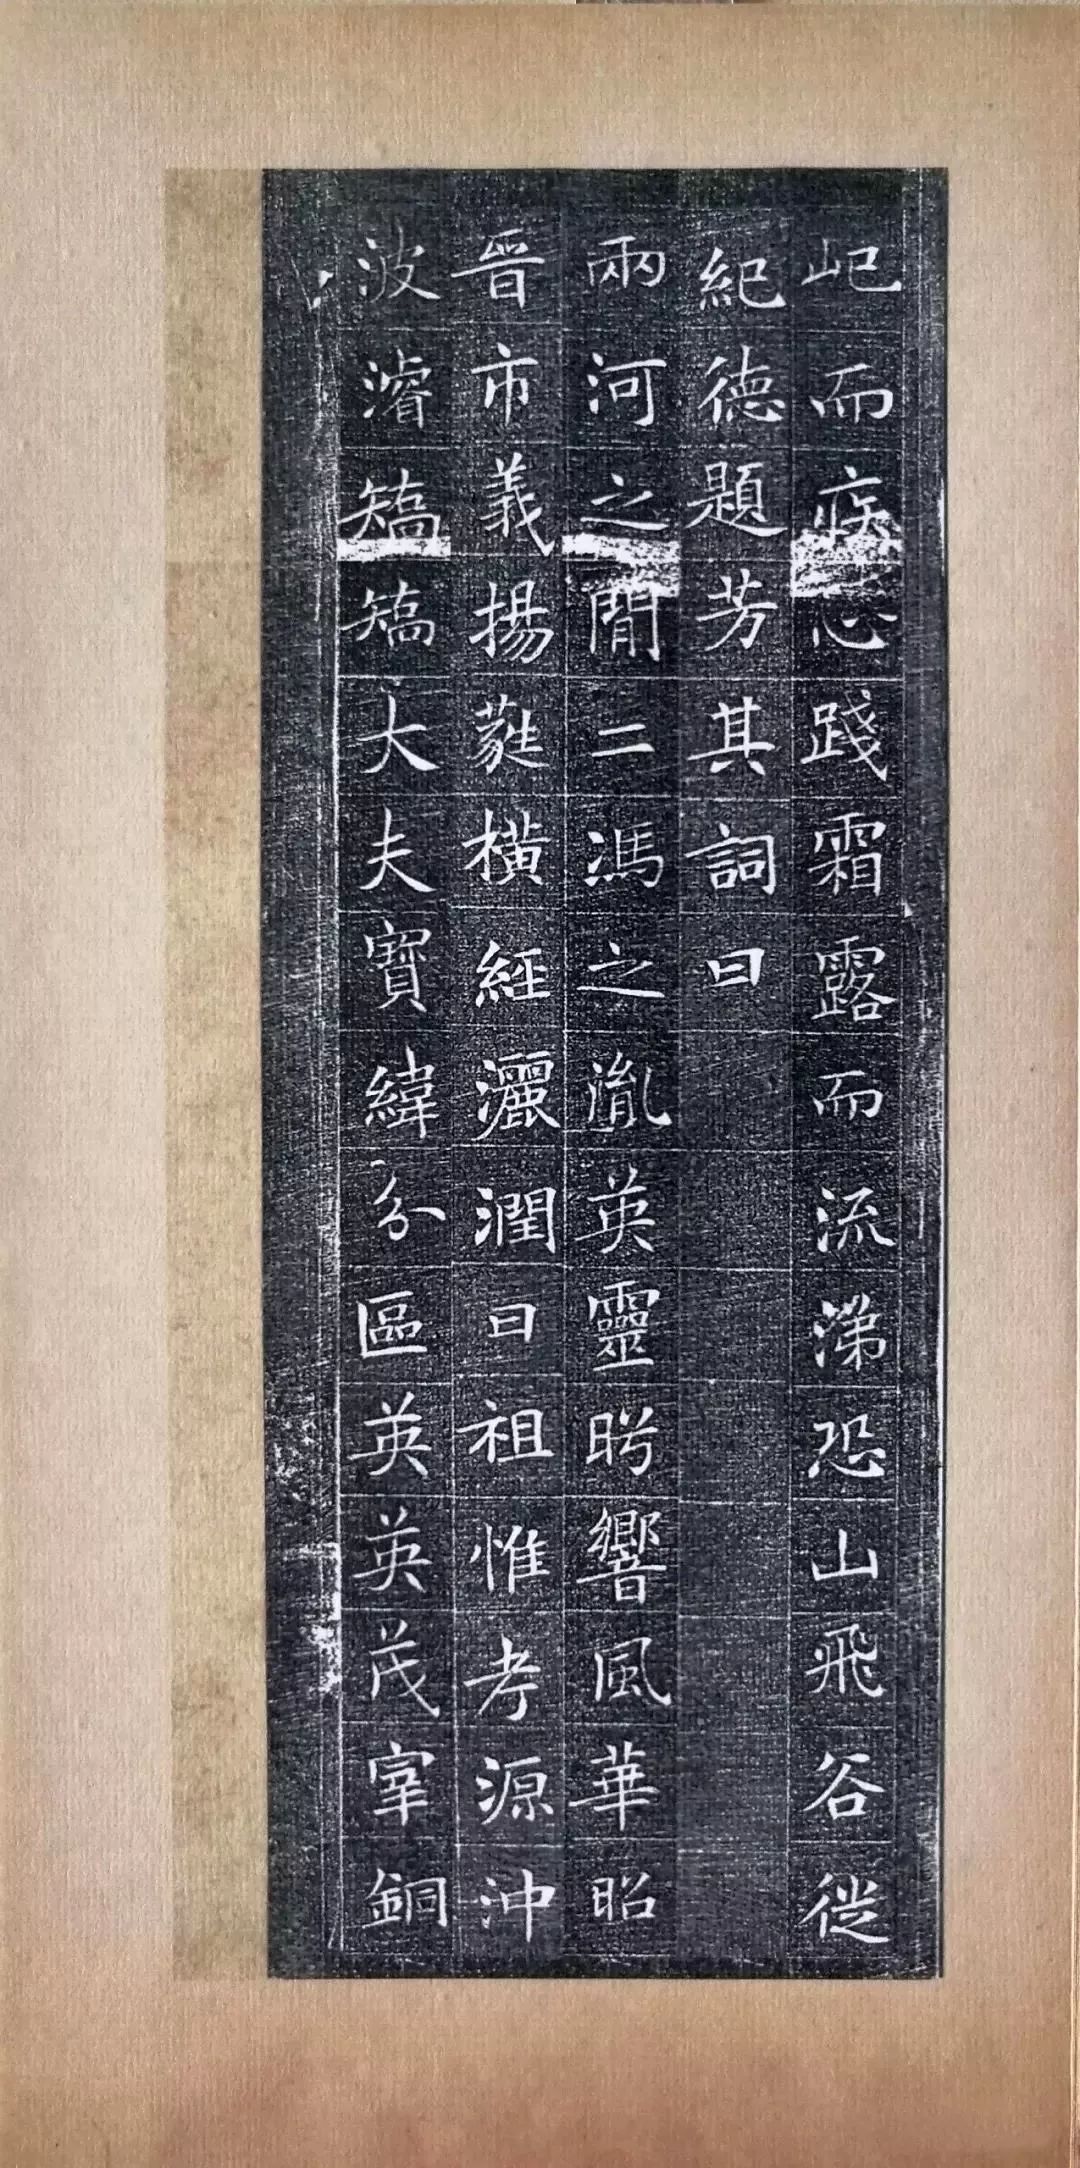 屺而疚心踐霜露而流涕恐山飛谷徙
紀德題芳其詞曰
兩河之閒二馮之胤英靈盻響風華昭
晉市義揚蕤橫經灑潤曰祖惟考源沖
波濬矯矯大夫寶緯分區英英茂宰銅